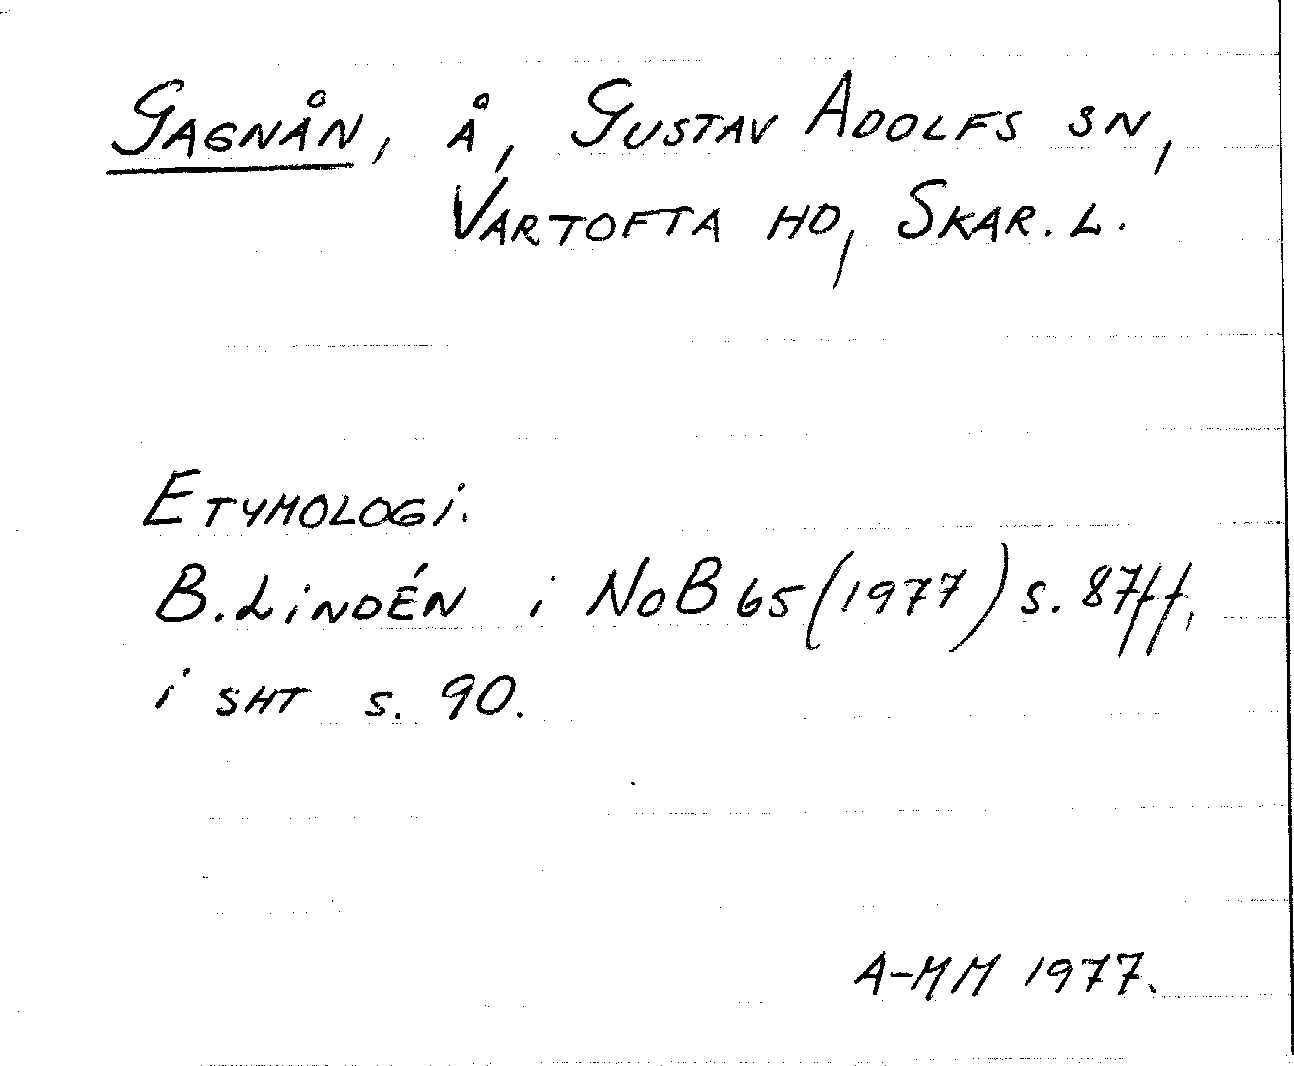 Gagnån, å, Gustav Adolfs sn,
Vartofta hd, Skar. l.
Etymologi.
B. Lindén i NoB 65 (1977) s. 87ff,
i sht s. 90.
A-MM 1977.